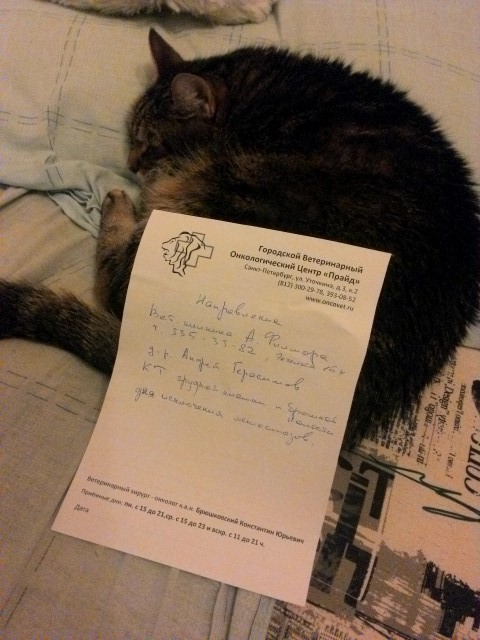 Городской Ветеринарный
Онкологический Центр «Прайд»
Санкт-Петербург, ул. Уточкина, д.3, к.2
(812) 300-29-78, 393-08-52
www.oncovet.ru
Направление
Вет. клиника А. Филмора
т. 335-33-82,
д-р. Андрей Герасимов
КТ грудной клетки и брюшной полости
для исключения метастазов.
Ветеринарный хирург - онколог к.в.н. Брюшковский Константин Юрьевич
Приёмные дни: пн. с 15 до 21, ср. с 15 до 23 и вскр. с 11 до 21 ч.
Дата